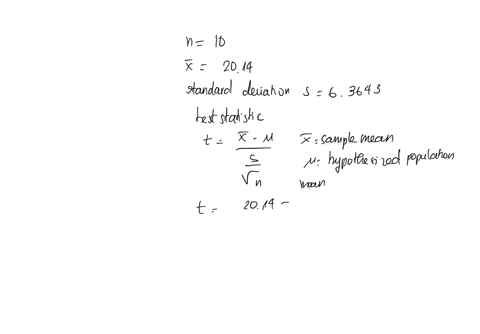 n = 10
x̄ = 20.14
standard deviation s = 6.3643
test statistic
t = x̄ - μ x̄ = sample mean
s μ = hypothesized population
√n mean
t = 20.14 -